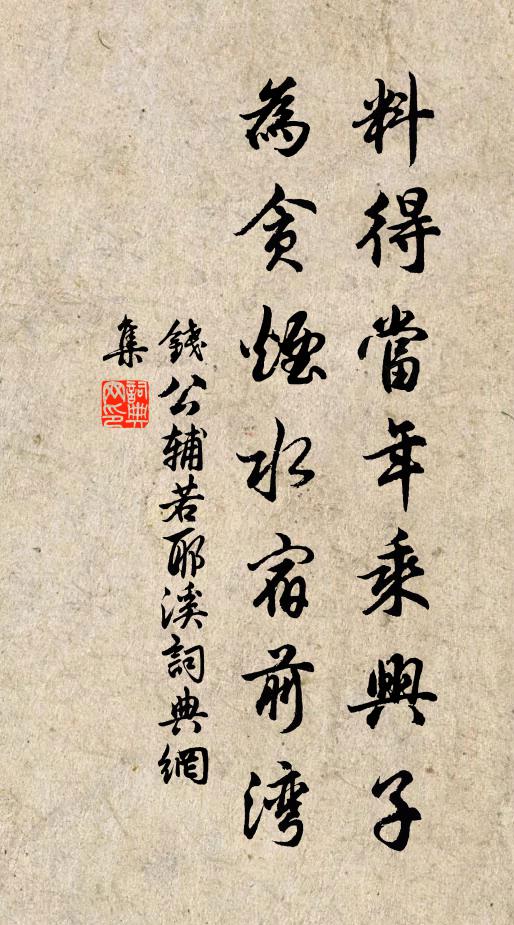 料得當年乘興子
為貪煙水宿前灣
錢公辅若耶溪詞典網
集
詞典网印